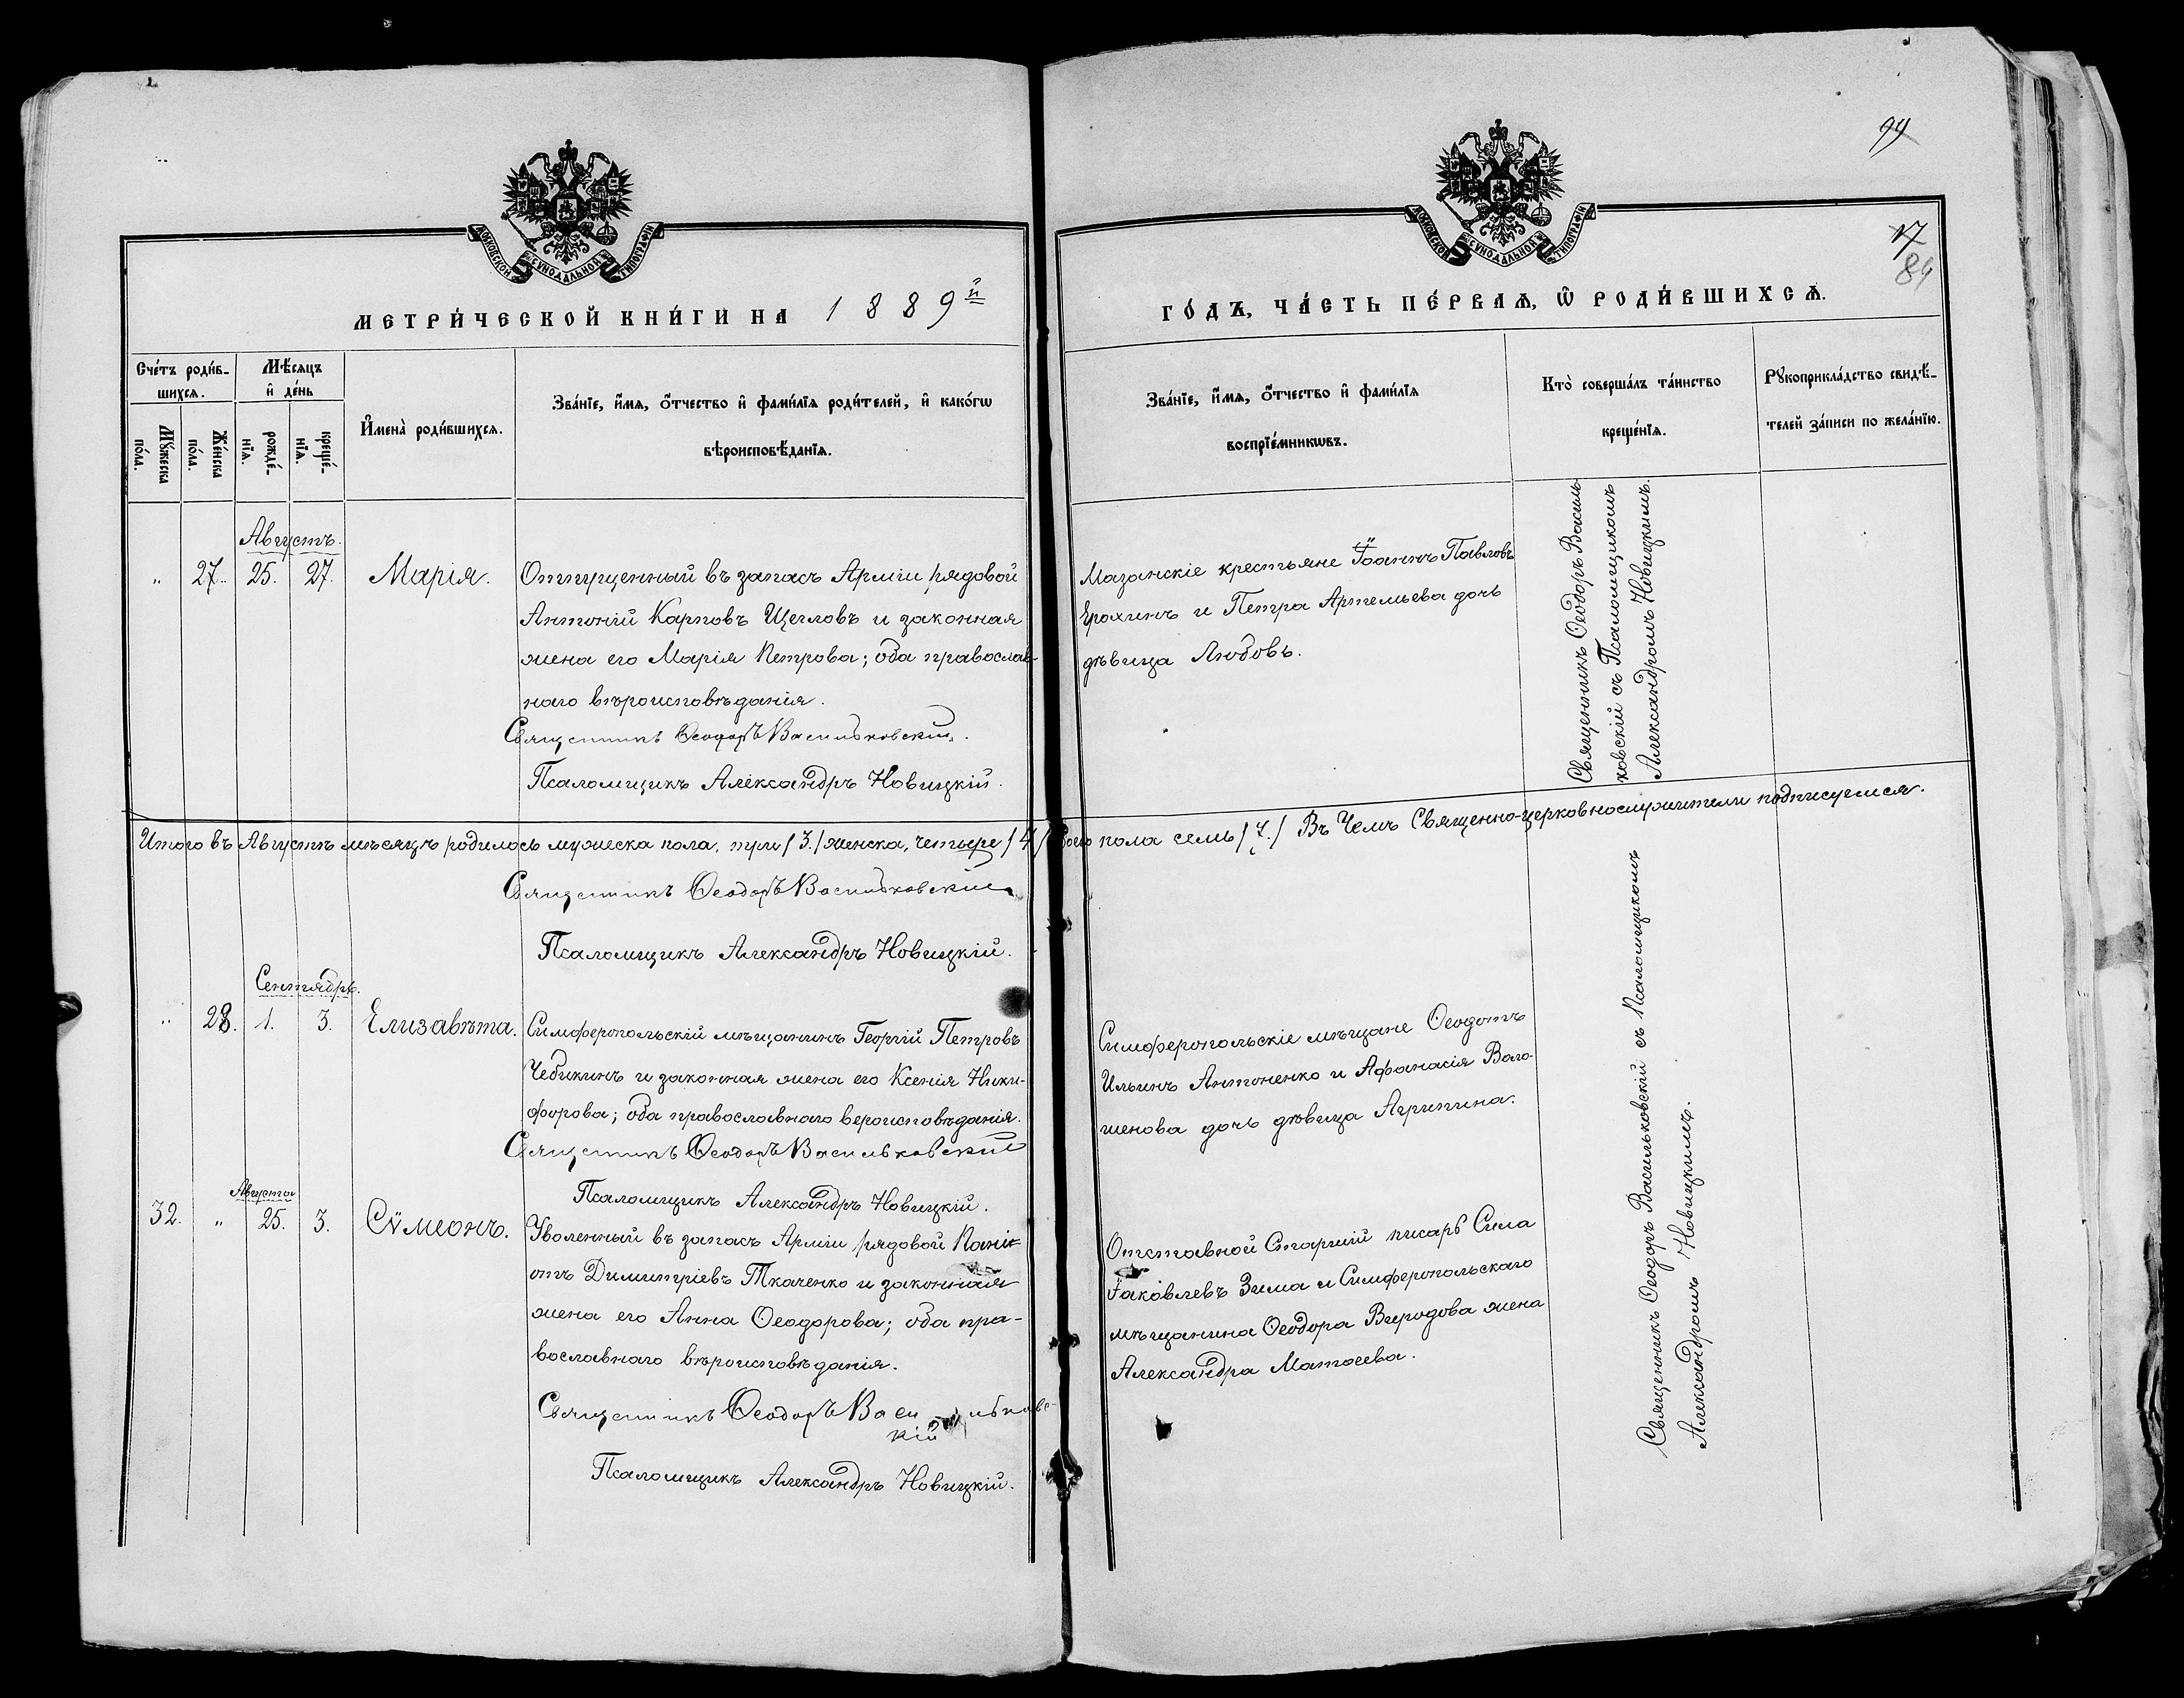 МОСКОВСКОЙ СѴНОДАЛЬНОЙ ТИПОГРАФІИ
МЕТРИ́ЧЕСКОЙ КНИ́ГИ НА 1889й
Сче́тъ роди́в-
шихся.
Мѣ́сяцъ
и҆ де́нь
Мꙋ́жеска
по́ла.
Же́нска
по́ла.
рожде́-
нїя.
креще́-
нїя.
И҆мена̀ роди́вшихся.
Зва́нїе, и҆́мя, ѻ҆́тчество и҆ фами́лїя роди́телей, и҆ како́гѡ
вѣроисповѣ́данїя.
Августъ.
" 27. 25. 27. Марія. Отпущенный въ запасъ Арміи рядовой
Антоній Карповъ Щегловъ и законная
жена его Марія Петрова; оба православ-
наго вѣроисповѣданія.
Священникъ Ѳеодоръ Васильковскій.
Псаломщикъ Александръ Новицкій.
Итого въ Августѣ мѣсяцѣ родилось мужеска пола, три /3./ женска, четыре /4/
Священникъ Ѳеодоръ Васильковскій
Псаломщикъ Александръ Новицкій.
Сентябрь.
" 28. 1. 3. Елизавѣта. Симферопольскій мѣщанинъ Георгій Петровъ
Чебикинъ и законная жена его Ксенія Ники-
форова; оба православнаго вероисповѣданія.
Священникъ Ѳеодоръ Васильковскій
Псаломщикъ Александръ Новицкій.
Августа
32. " 25. 3. Сѵмеонъ. Уволенный въ запасъ Арміи рядовой
отъ Димитріевъ Ткаченко и законная
жена его Анна Ѳеодорова; оба пра-
вославнаго вѣроисповѣданія.
Священникъ Ѳеодоръ Васильковс-
кій
Псаломщикъ Александръ Новицкій.
99
17
84
МОСКОВСКОЙ СѴНОДАЛЬНОЙ ТИПОГРАФІИ
ГО́ДЪ, ЧА́СТЬ ПЕ́РВАѦ, Ѽ РОДИ́ВШИХСѦ.
Зва́нїе, и҆́мя, ѻ҆́тчество и҆ фами́лїя
воспрїе́мникѡвъ.
Кто̀ соверша́лъ та́инство
креще́нїя.
Рꙋкоприкла́дство свидѣ́-
телей за́писи по жела́нїю.
Мазанскіе крестьяне Іоаннъ Павловъ
Ерохинъ и Петра Артемьева дочь
дѣвица Любовь.
Священникъ Ѳеодоръ Василь-
ковскій съ Псаломщикомъ
Александромъ Новицкимъ.
пола семь /7./ Въ Чемъ Священно-церковнослужители подписуемся.
Симферопольскіе мѣщане Ѳеодотъ
Ильинъ Антоненко и Афанасія Воло-
шенова дочь дѣвица Агрипина.
Отставной Старшій писарь Сила
Іаковлевъ Зима и Симферопольскаго
мѣщанина Ѳеодора Виродова жена
Александра Матѳеева.
Священникъ Ѳеодоръ Васильковскій съ Псаломщикомъ
Александромъ Новицкимъ.